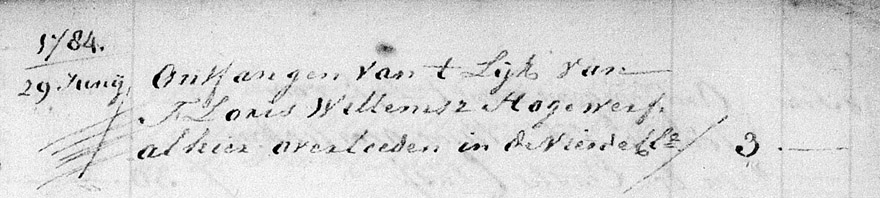 1784.
29 Junij, Ontfangen van t Lijk van
Floris Willemsz Hogewerf
alhier overleeden in de vierde Cl.e / 3 —